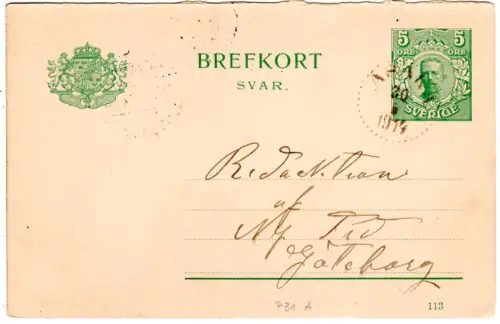 BREFKORT
SVAR.
5 5
ÖRE ÖRE
SVERIGE
30
1914
Redaktion
af
Ny Tid
Göteborg
P31 A
113